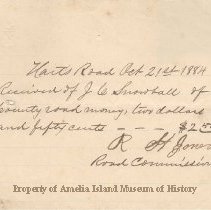 Harts Road Oct 21st 1884
Received of J C Snowball of
County road money, two dollars
and fifty cents - - - $2.5
R H Jones
Road Commission
Property of Amelia Island Museum of History